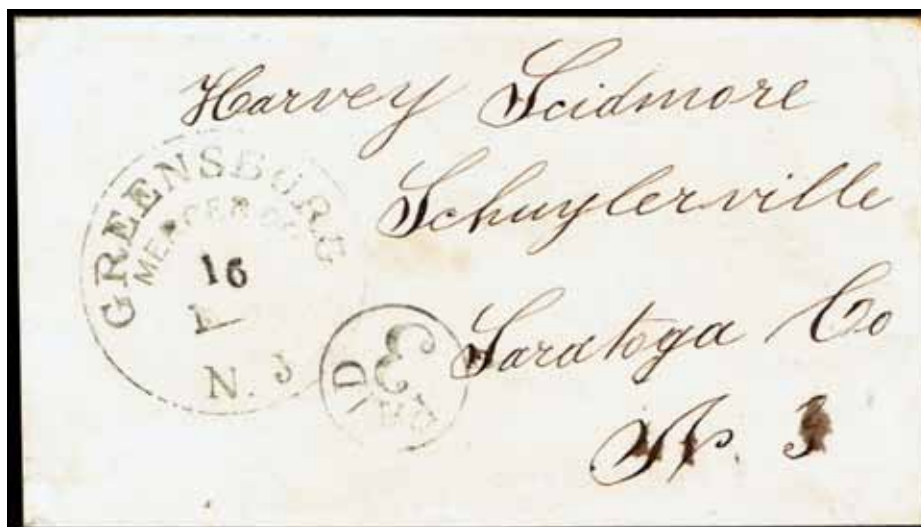 Harvey Scidmore
Schuylerville
Saratoga Co
N.
GREENSBURG
MERCER CO.
16
N. J
PAID
3